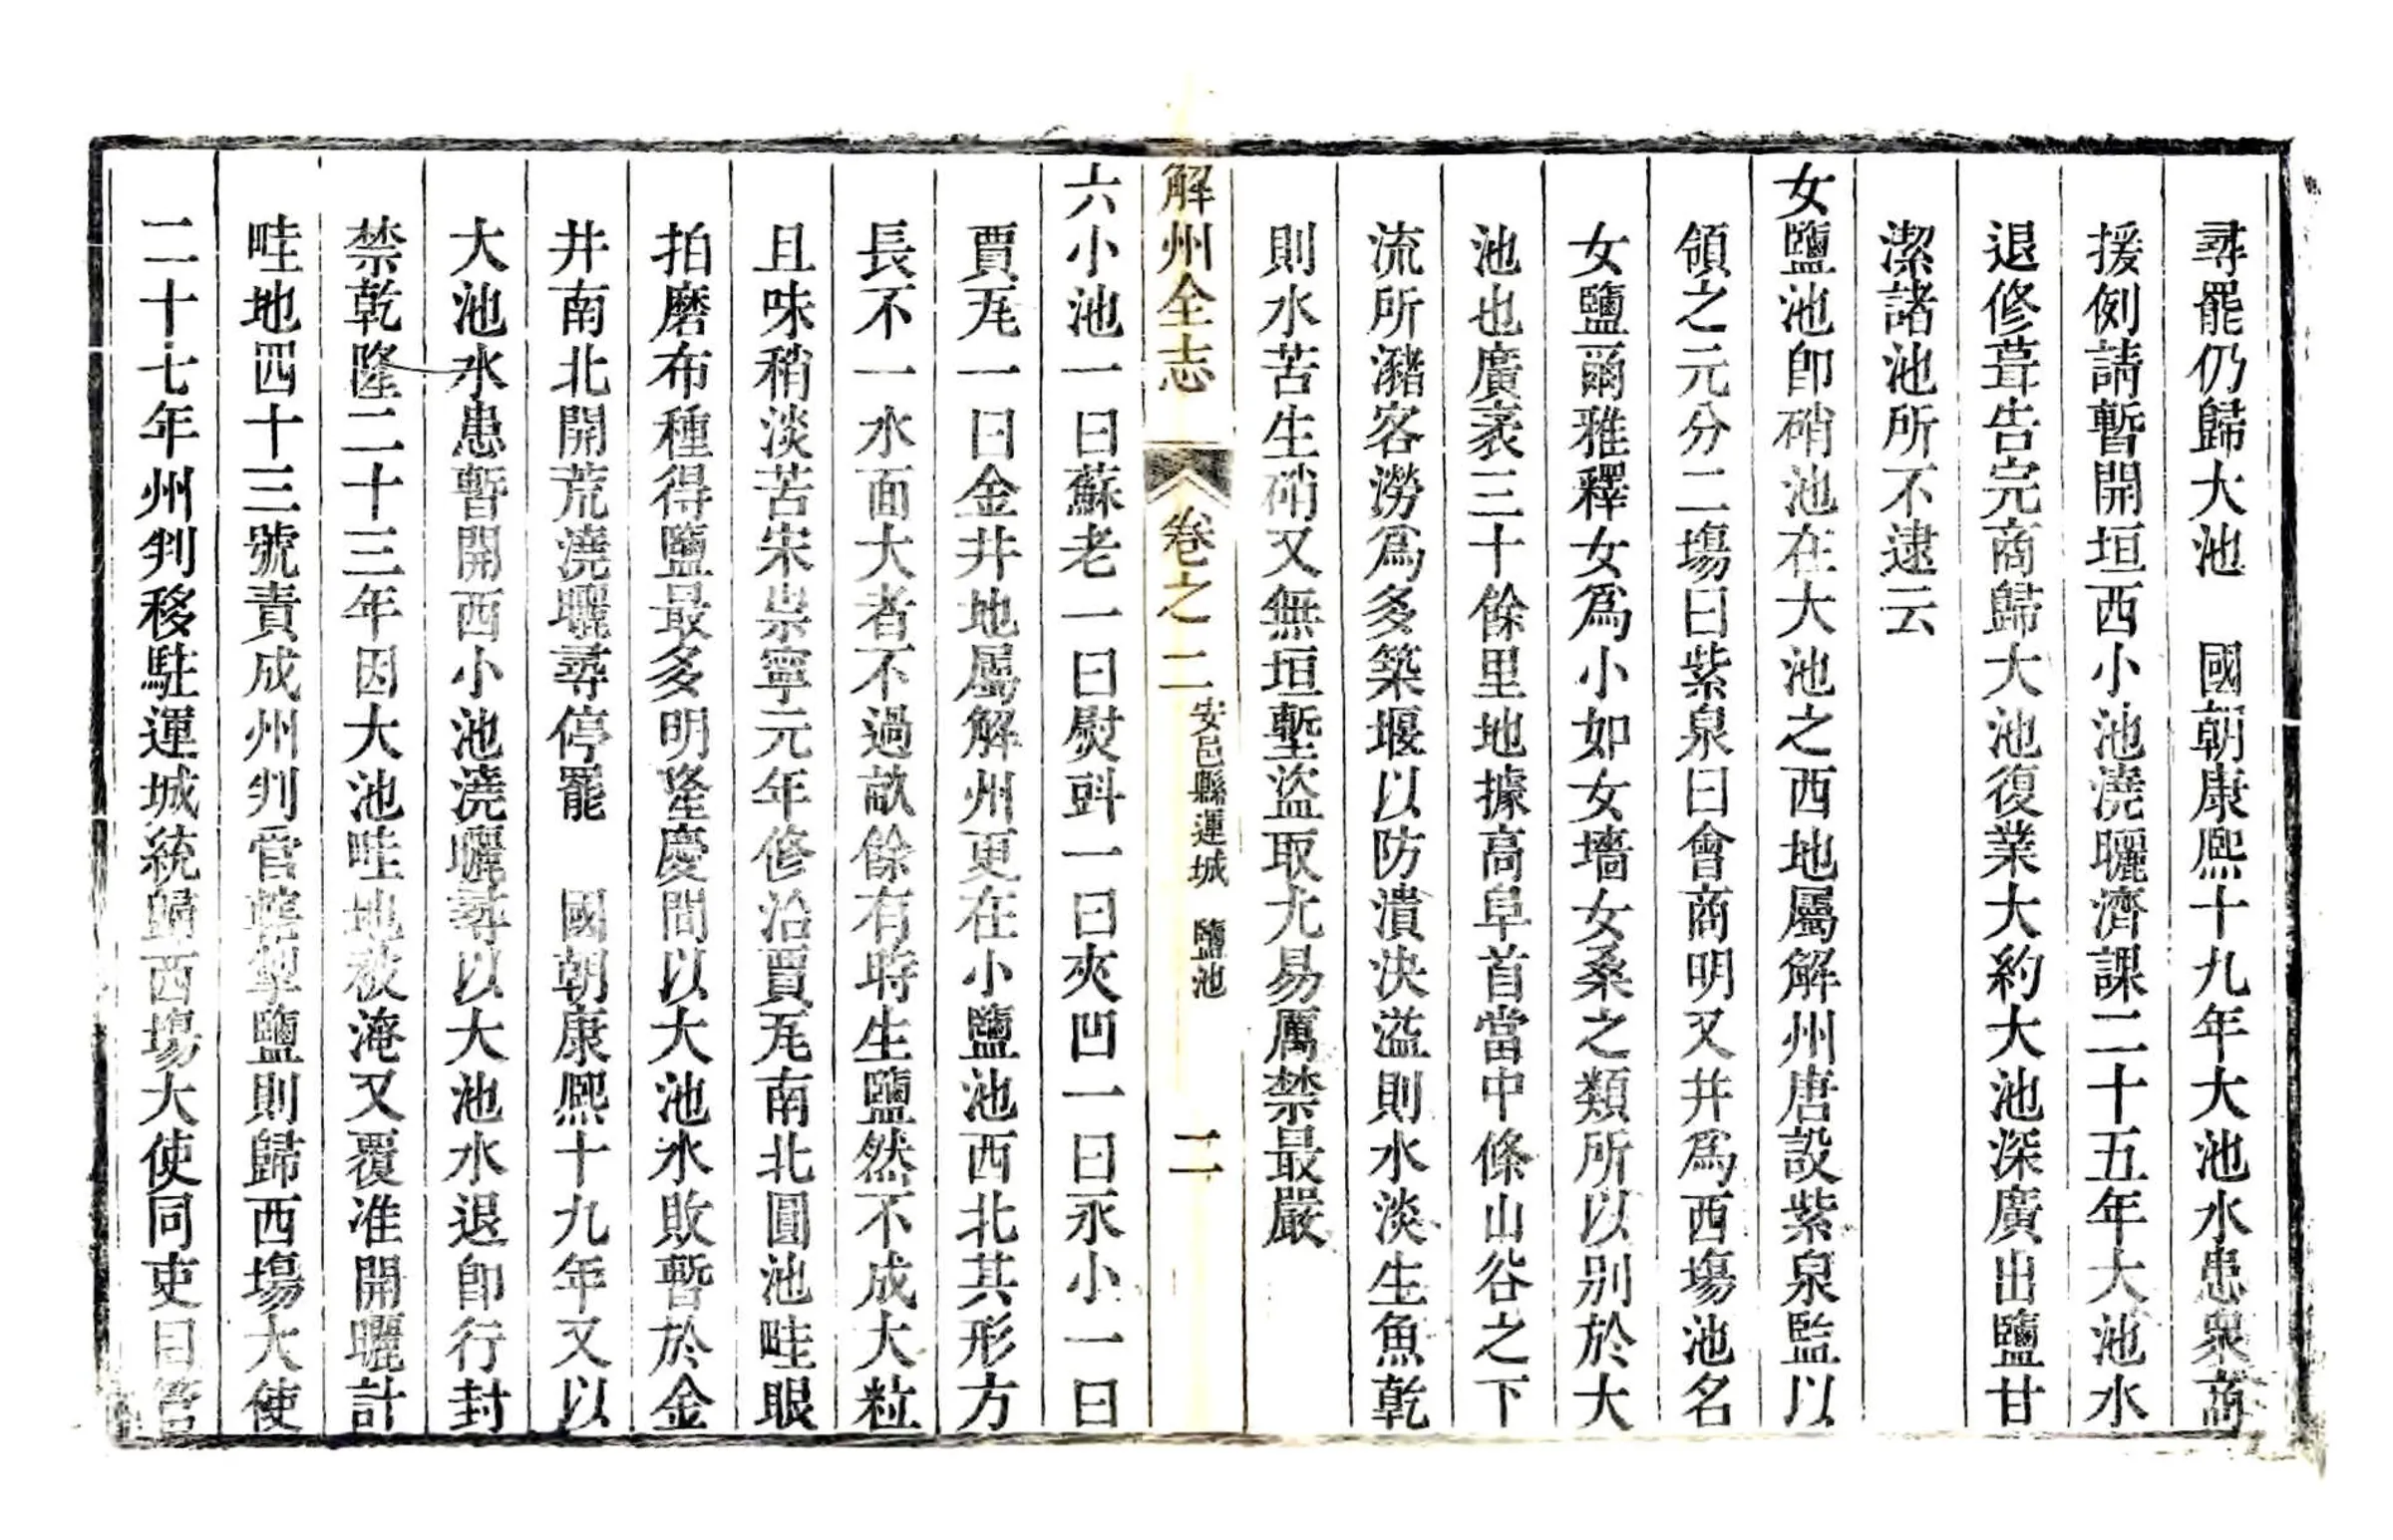 尋罷仍歸大池　國朝康熙十九年大池水患衆商
援例請暫開垣西小池澆曬濟課二十五年大池水
退修葺告完商歸大池復業大約大池深廣出鹽甘
潔諸池所不逮云
女鹽池卽硝池在大池之西地屬解州唐設紫泉監以
領之元分二場曰紫泉曰會商明又井爲西場池名
女鹽爾雅釋女爲小如女墻女桑之類所以别於大
池也廣袤三十餘里地據高阜首當中條山谷之下
流所瀦客澇爲多築堰以防潰决溢則水淡生魚乾
則水苦生硝又無垣塹盜取尤易厲禁最嚴
解州全志　卷之二　安邑縣運城　鹽池　二
六小池一曰蘇老一曰熨㪷一曰夾凹一曰永小一曰
賈瓦一曰金井地屬解州更在小鹽池西北其形方
長不一水面大者不過畝餘有時生鹽然不成大粒
且味稍淡苦宋崇寧元年修治賈瓦南北圓池畦眼
拍磨布種得鹽最多明隆慶間以大池水敗暫於金
井南北開荒澆曬尋停罷　國朝康熙十九年又以
大池水患暫開西小池澆曬尋以大池水退卽行封
禁乾隆二十三年因大池畦地被淹又覆准開曬計
畦地四十三號責成州判管轄掣鹽則歸西場大使
二十七年州判移駐運城統歸西場大使同吏目管